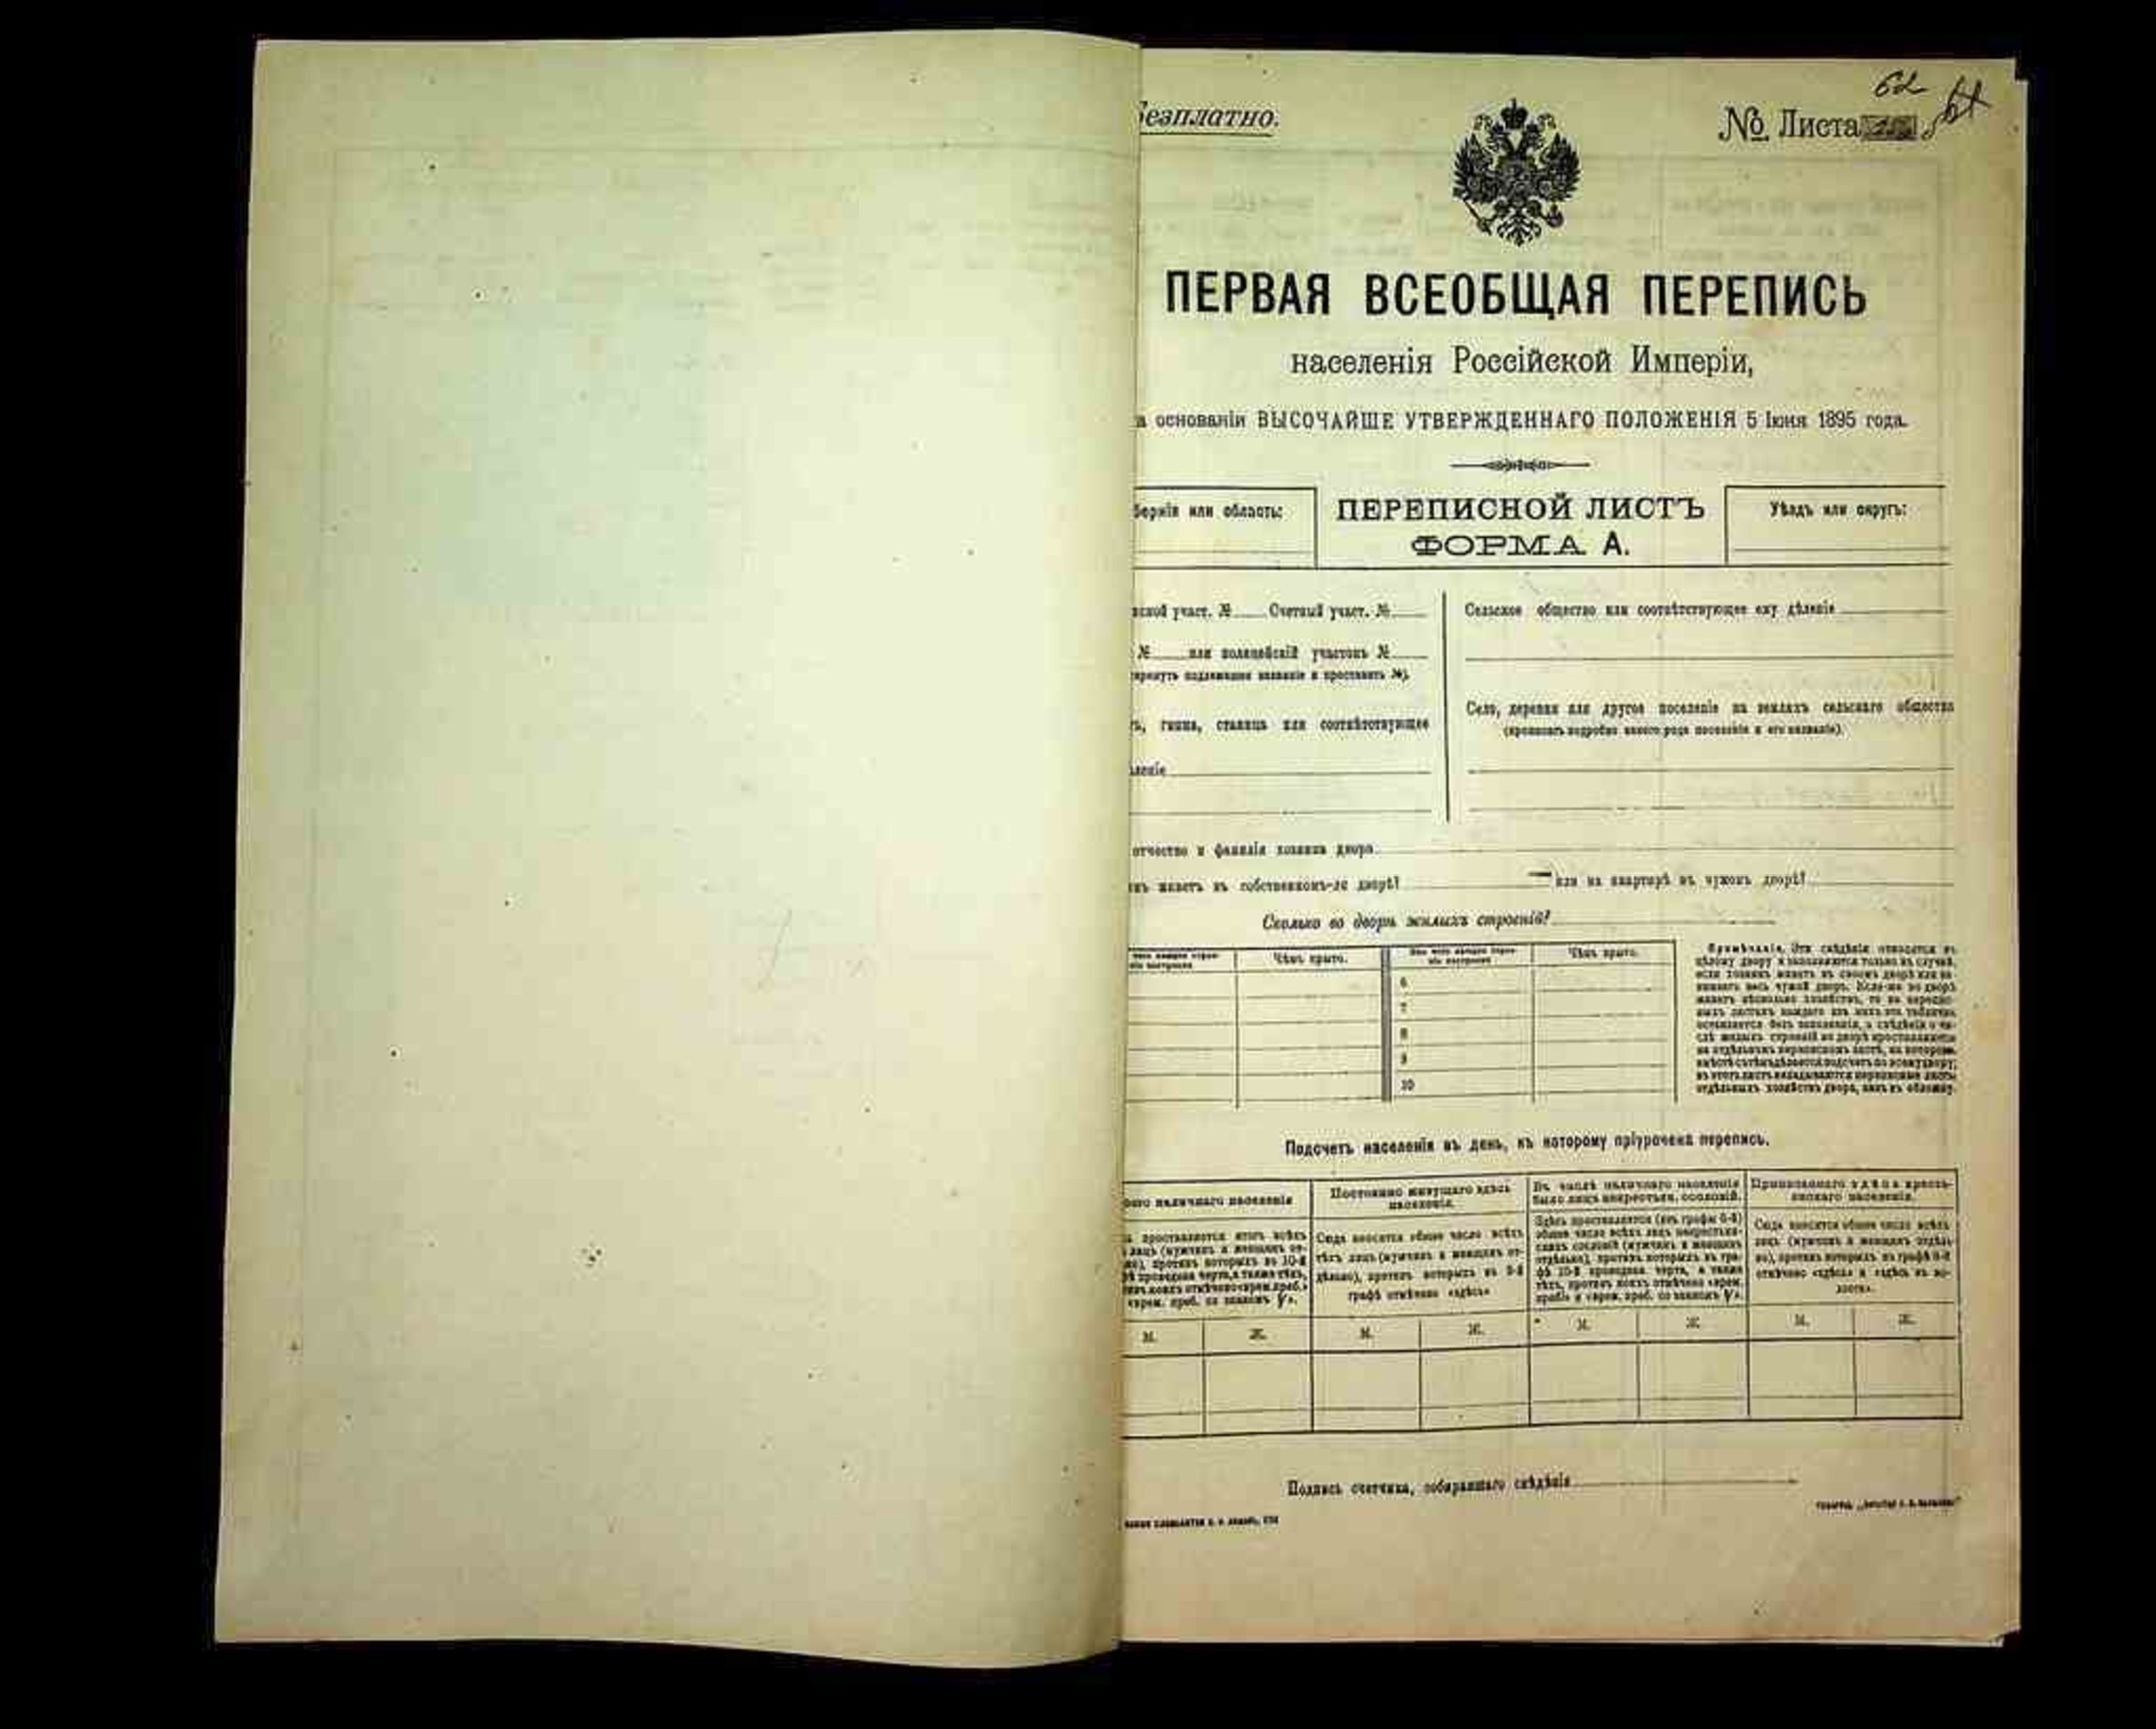 Безплатно.
62
№ Листа
ПЕРВАЯ ВСЕОБЩАЯ ПЕРЕПИСЬ
населенія Россійской Имперіи,
а основаніи ВЫСОЧАЙШЕ УТВЕРЖДЕННАГО ПОЛОЖЕНІЯ 5 Іюня 1895 года.
бернія или область:
ПЕРЕПИСНОЙ ЛИСТЪ
ФОРМА А.
Уѣздъ или округъ:
ской участ. № Счетный участ. №
№ или полицейскій участокъ №
еркнуть подлежащее названіе и проставить №).
ь, гмина, станица или соотвѣтствующее
леніе
Сельское общество или соотвѣтствующее ему дѣленіе
Село, деревня или другое поселеніе на земляхъ сельскаго общества
(прописать подробно какого рода поселеніе и его названіе).
отчество и фамилія хозяина двора
нъ живетъ въ собственномъ-ле дворѣ? или на квартирѣ въ чужомъ дворѣ?
Сколько во дворѣ жилыхъ строеній?
Чѣмъ крыто.
Чѣмъ крыто.
6
7
8
9
10
Примѣчаніе. Эти свѣдѣнія относятся къ
цѣлому двору и заполняются только въ случаѣ,
если хозяинъ живетъ въ своемъ дворѣ или за-
нимаетъ весь чужой дворъ. Если-же во дворѣ
живетъ нѣсколько хозяйствъ, то въ перепис-
ныхъ листахъ каждаго изъ нихъ эта табличка
оставляется безъ заполненія, а свѣдѣнія о чи-
слѣ жилыхъ строеній во дворѣ проставляются
на отдѣльномъ переписномъ листѣ, на которомъ
вмѣстѣ съ тѣмъ дѣлается подсчетъ по всему двору;
въ этотъ листъ вкладываются переписные листы
отдѣльныхъ хозяйствъ двора, какъ въ обложку.
Подсчетъ населенія въ день, къ которому пріурочена перепись.
наличнаго населенія
Постоянно живущаго здѣсь
населенія.
Въ числѣ наличнаго населенія
было лицъ некрестьян. сословій.
Приписаннаго здѣсь кресть-
янскаго населенія.
проставляется итогъ всѣхъ
лицъ (мужчинъ и женщинъ от-
но), противъ которыхъ въ 10-й
ѣ проведена черта, а также тѣхъ,
врем. преб. со знакомъ
Сюда вносится общее число всѣхъ
тѣхъ лицъ (мужчинъ и женщинъ от-
дѣльно), противъ которыхъ въ 9-й
графѣ отмѣчено «здѣсь»
Здѣсь проставляется (изъ графы 6-й)
общее число всѣхъ лицъ некрестьян-
скихъ сословій (мужчинъ и женщинъ
отдѣльно), противъ которыхъ въ гра-
фѣ 10-й проведена черта, а также
тѣхъ, противъ коихъ отмѣчено «врем.
преб» и «врем. преб. со знакомъ
Сюда вносится общее число всѣхъ
лицъ (мужчинъ и женщинъ отдѣль-
но), противъ которыхъ въ графѣ 8-й
отмѣчено «здѣсь» и «здѣсь въ во-
лости».
М. Ж. М. Ж. М. Ж. М. Ж.
Подпись счетчика, собиравшаго свѣдѣнія